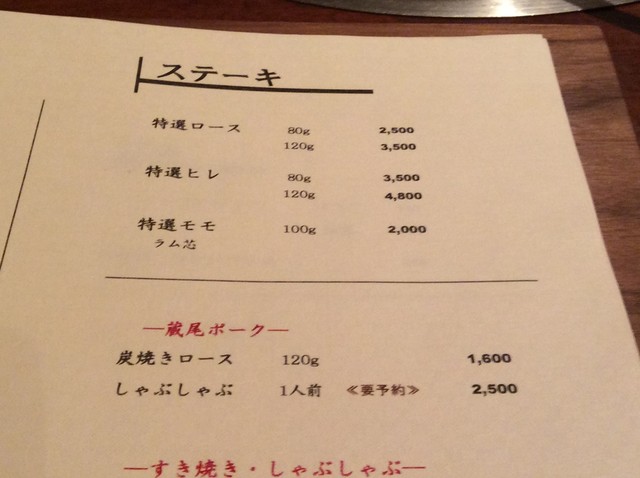 ステーキ
特選ロース 80g 2,500
120g 3,500
特選ヒレ 80g 3,500
120g 4,800
特選モモ 100g 2,000
ラム芯
―蔵尾ポーク―
炭焼きロース 120g 1,600
しゃぶしゃぶ 1人前 ≪要予約≫ 2,500
―すき焼き・しゃぶしゃぶ―